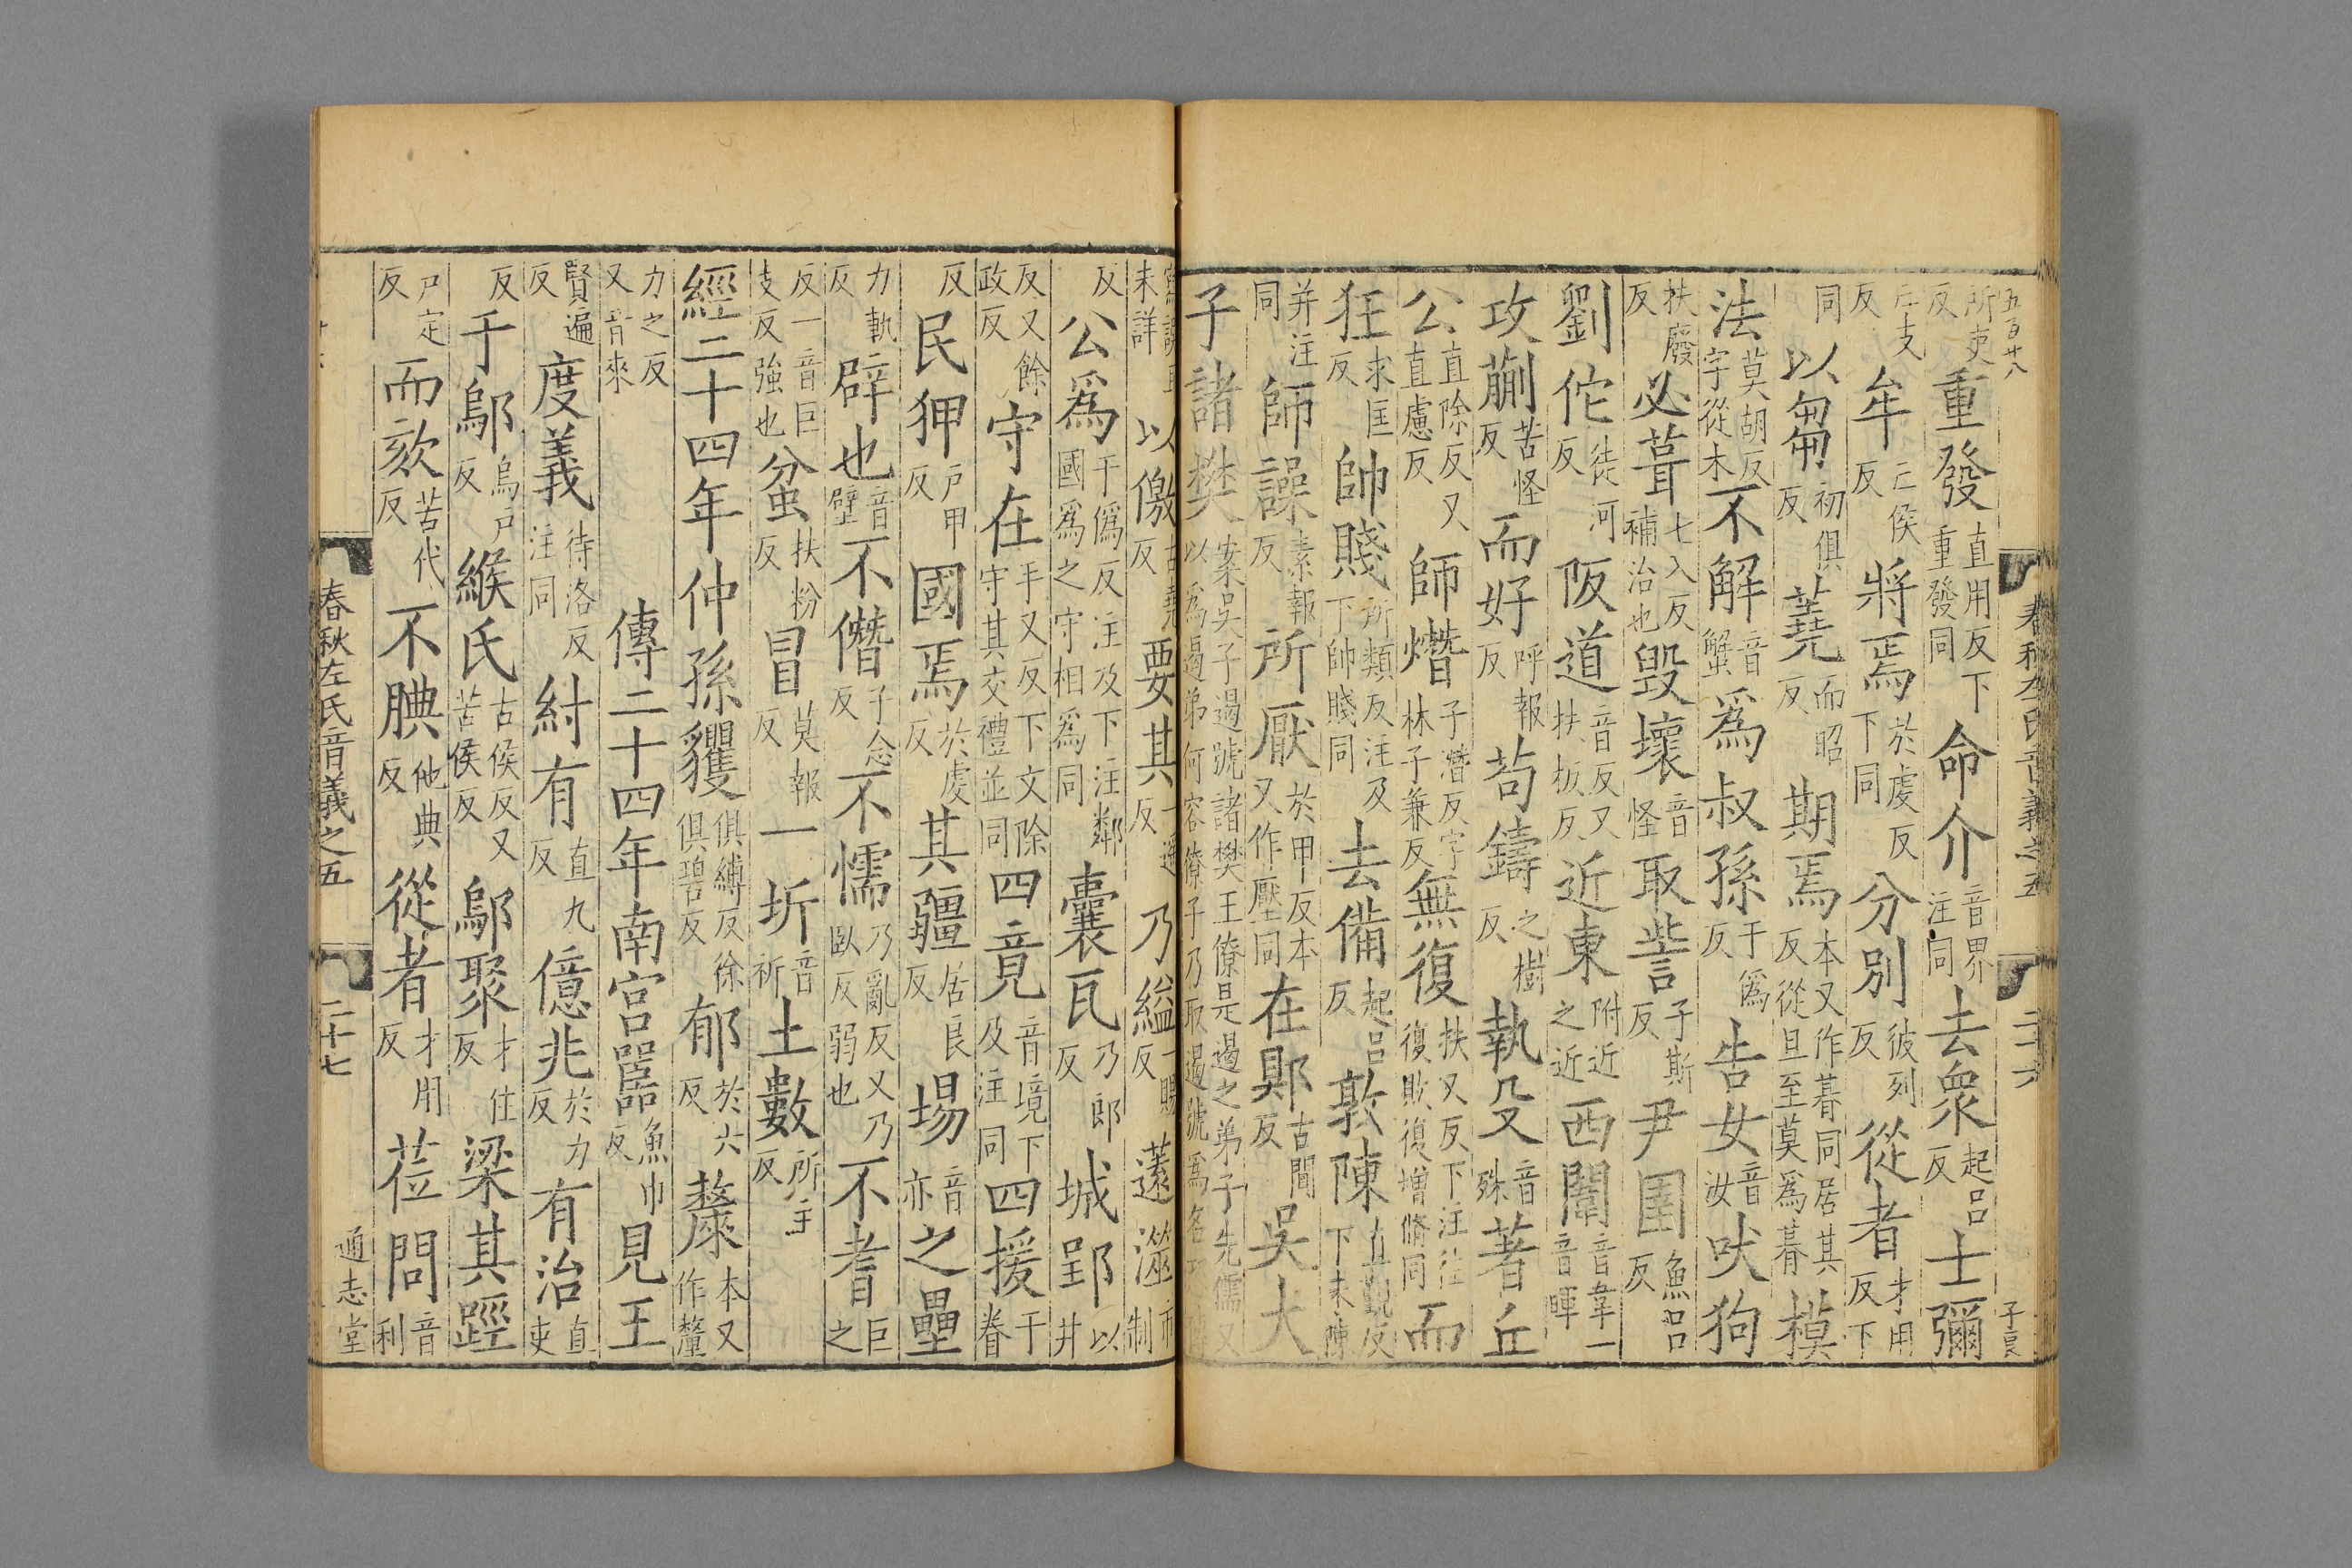 五百廿八 春秋左氏音義之五 二十六 子良
所吏反 重發直用反下重發同 命介音界注同 去衆起呂反 士彌
亡支反 牟亡侯反 將焉於虔反下同 分別彼列反 從者才用反下
同 以芻初俱反 蕘而昭反 期焉本又作朞同居其反從旦至莫爲朞 模
法莫胡反字從木 不解音蟹 爲叔孫于僞反 告女音汝 吠狗
扶廢反 必葺七入反補治也 毀壞音怪 取訾子斯反 尹圉魚呂反
劉佗徒河反 阪道音反又扶板反 近東附近之近 西闈音韋一音暉
攻蒯苦怪反 而好呼報反 苟鑄之樹反 執殳音殊 著丘
公直除反又直慮反 師熸子潛反字林子兼反 無復扶又反下注往復敗復增脩同 而
狂求匡反 帥賤所類反注及下帥賤同 去備起呂反 敦陳直覲反下未陳
并注同 師譟素報反 所厭於甲反本又作壓同 在郹古闃反 吳大
子諸樊案吳子遏號諸樊王僚是遏之弟子先儒又以爲遏弟何容僚子乃取遏號爲名
未詳 以徼古堯反 要其一遙反 乃縊一賜反 薳澨市制
反 公爲于僞反注及下注鄰國爲之守相爲同 囊瓦乃郎反 城郢以井
反又餘政反 守在手又反下文除守其交禮並同 四竟音境下及注同 四援于眷
反 民狎戶甲反 國焉於虔反 其疆居良反 場音亦 之壘
力軌反 辟也音壁 不僭子念反 不懦乃亂反又乃臥反弱也 不耆巨之
反一音巨支反強也 蚠扶粉反 冒莫報反 一圻音祈 土數所主反
經二十四年仲孫貜俱縛反徐俱碧反 郁於六反 釐本又作釐
力之反又音來 傳二十四年南宮嚚魚巾反 見王
賢遍反 度義待洛反注同 紂有直九反 億兆於力反 有治直吏
反 于鄔烏戶反 緱氏古侯反又苦侯反 鄔聚才住反 梁其踁
戶定反 而欬苦代反 不腆他典反 從者才用反 莅問音利
春秋左氏音義之五 二十七 通志堂